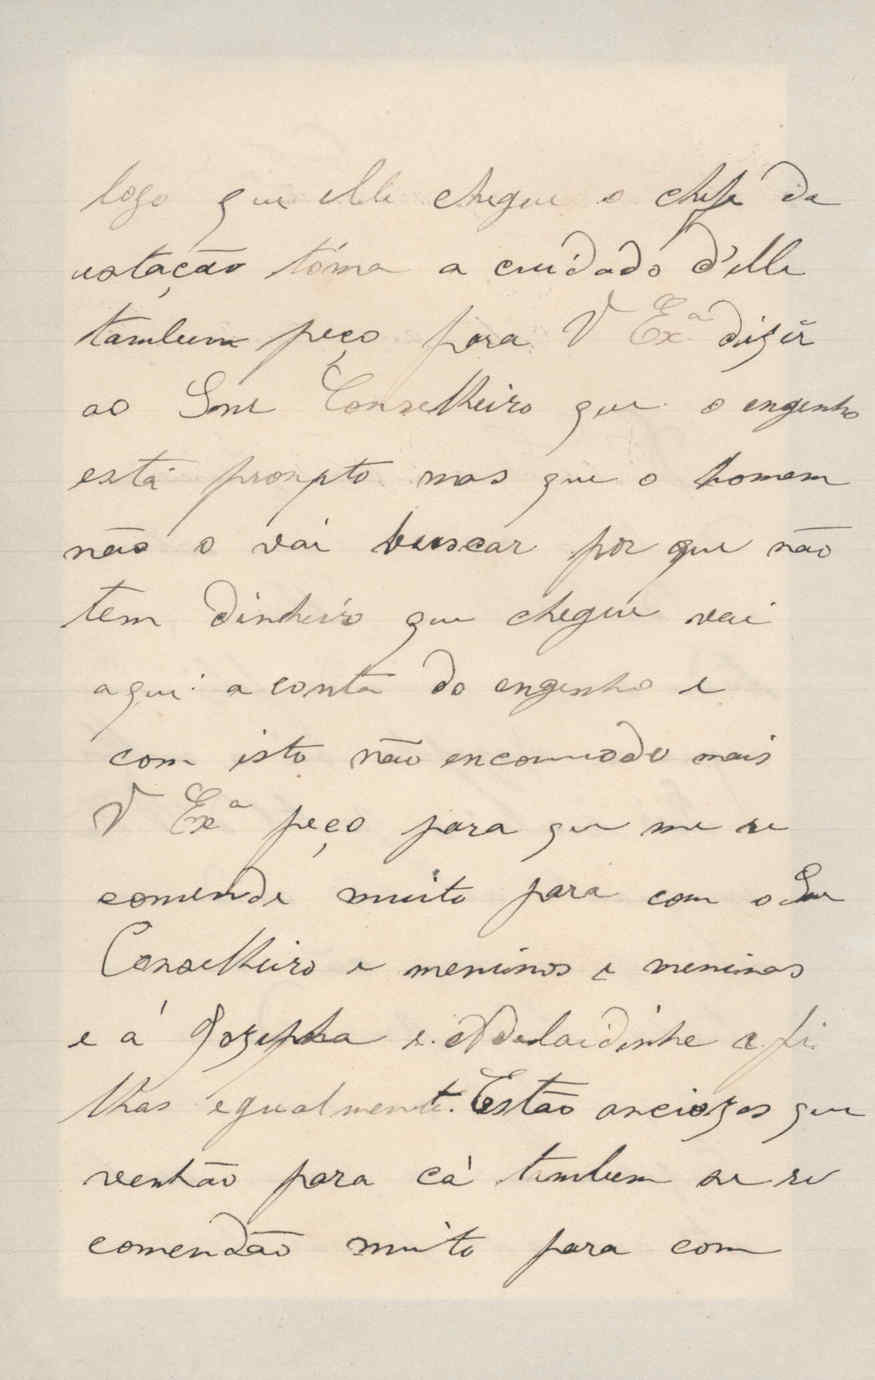 logo que elle chegue o chefe da
estação tóma a cuidado d'elle
tambem peço para V Ex.ª dizer
ao Snr Conselheiro que o engenho
está prompto mas que o homem
não o vai buscar por que não
tem dinheiro que chegue vai
aqui a conta do engenho e
com isto não encommodo mais
V Ex.ª peço para que me re
comende muito para com o Snr
Conselheiro e meninos e meninas
e á Jozepha e Adelaidinha e fi
lhas egualmente. Estão anciozos que
venhão para cá tambem se re
comendão muito para com